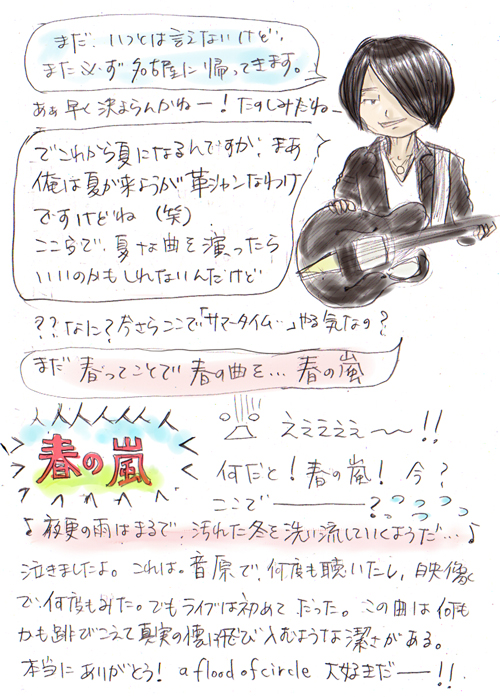 まだ、いつとは言えないけど、
また必ず名古屋に帰ってきます。
あぁ早く決まらんかねー！たのしみだねー
でこれから夏になるんですが、まあ
俺は夏が来ようが革ジャンなわけ
ですけどね（笑）
ここらで、夏な曲を演ったら
いいのかもしれないんだけど
？？なに？今さらここで「サマータイム…」やる気なの？
まだ春ってことで春の曲を…春の嵐
春の嵐
えええええ〜〜!!
何だと！春の嵐！今？
ここで————？
♪夜更の雨はまるで、汚れた冬を洗い流していくようだ…♪
泣きましたよ。これは。音原で、何度も聴いたし、映像
で、何度もみた。でもライブは初めてだった。この曲は何も
かも跳びこえて真実の懐に飛び込むような潔さがある。
本当にありがとう！a flood of circle 大好きだー——!!